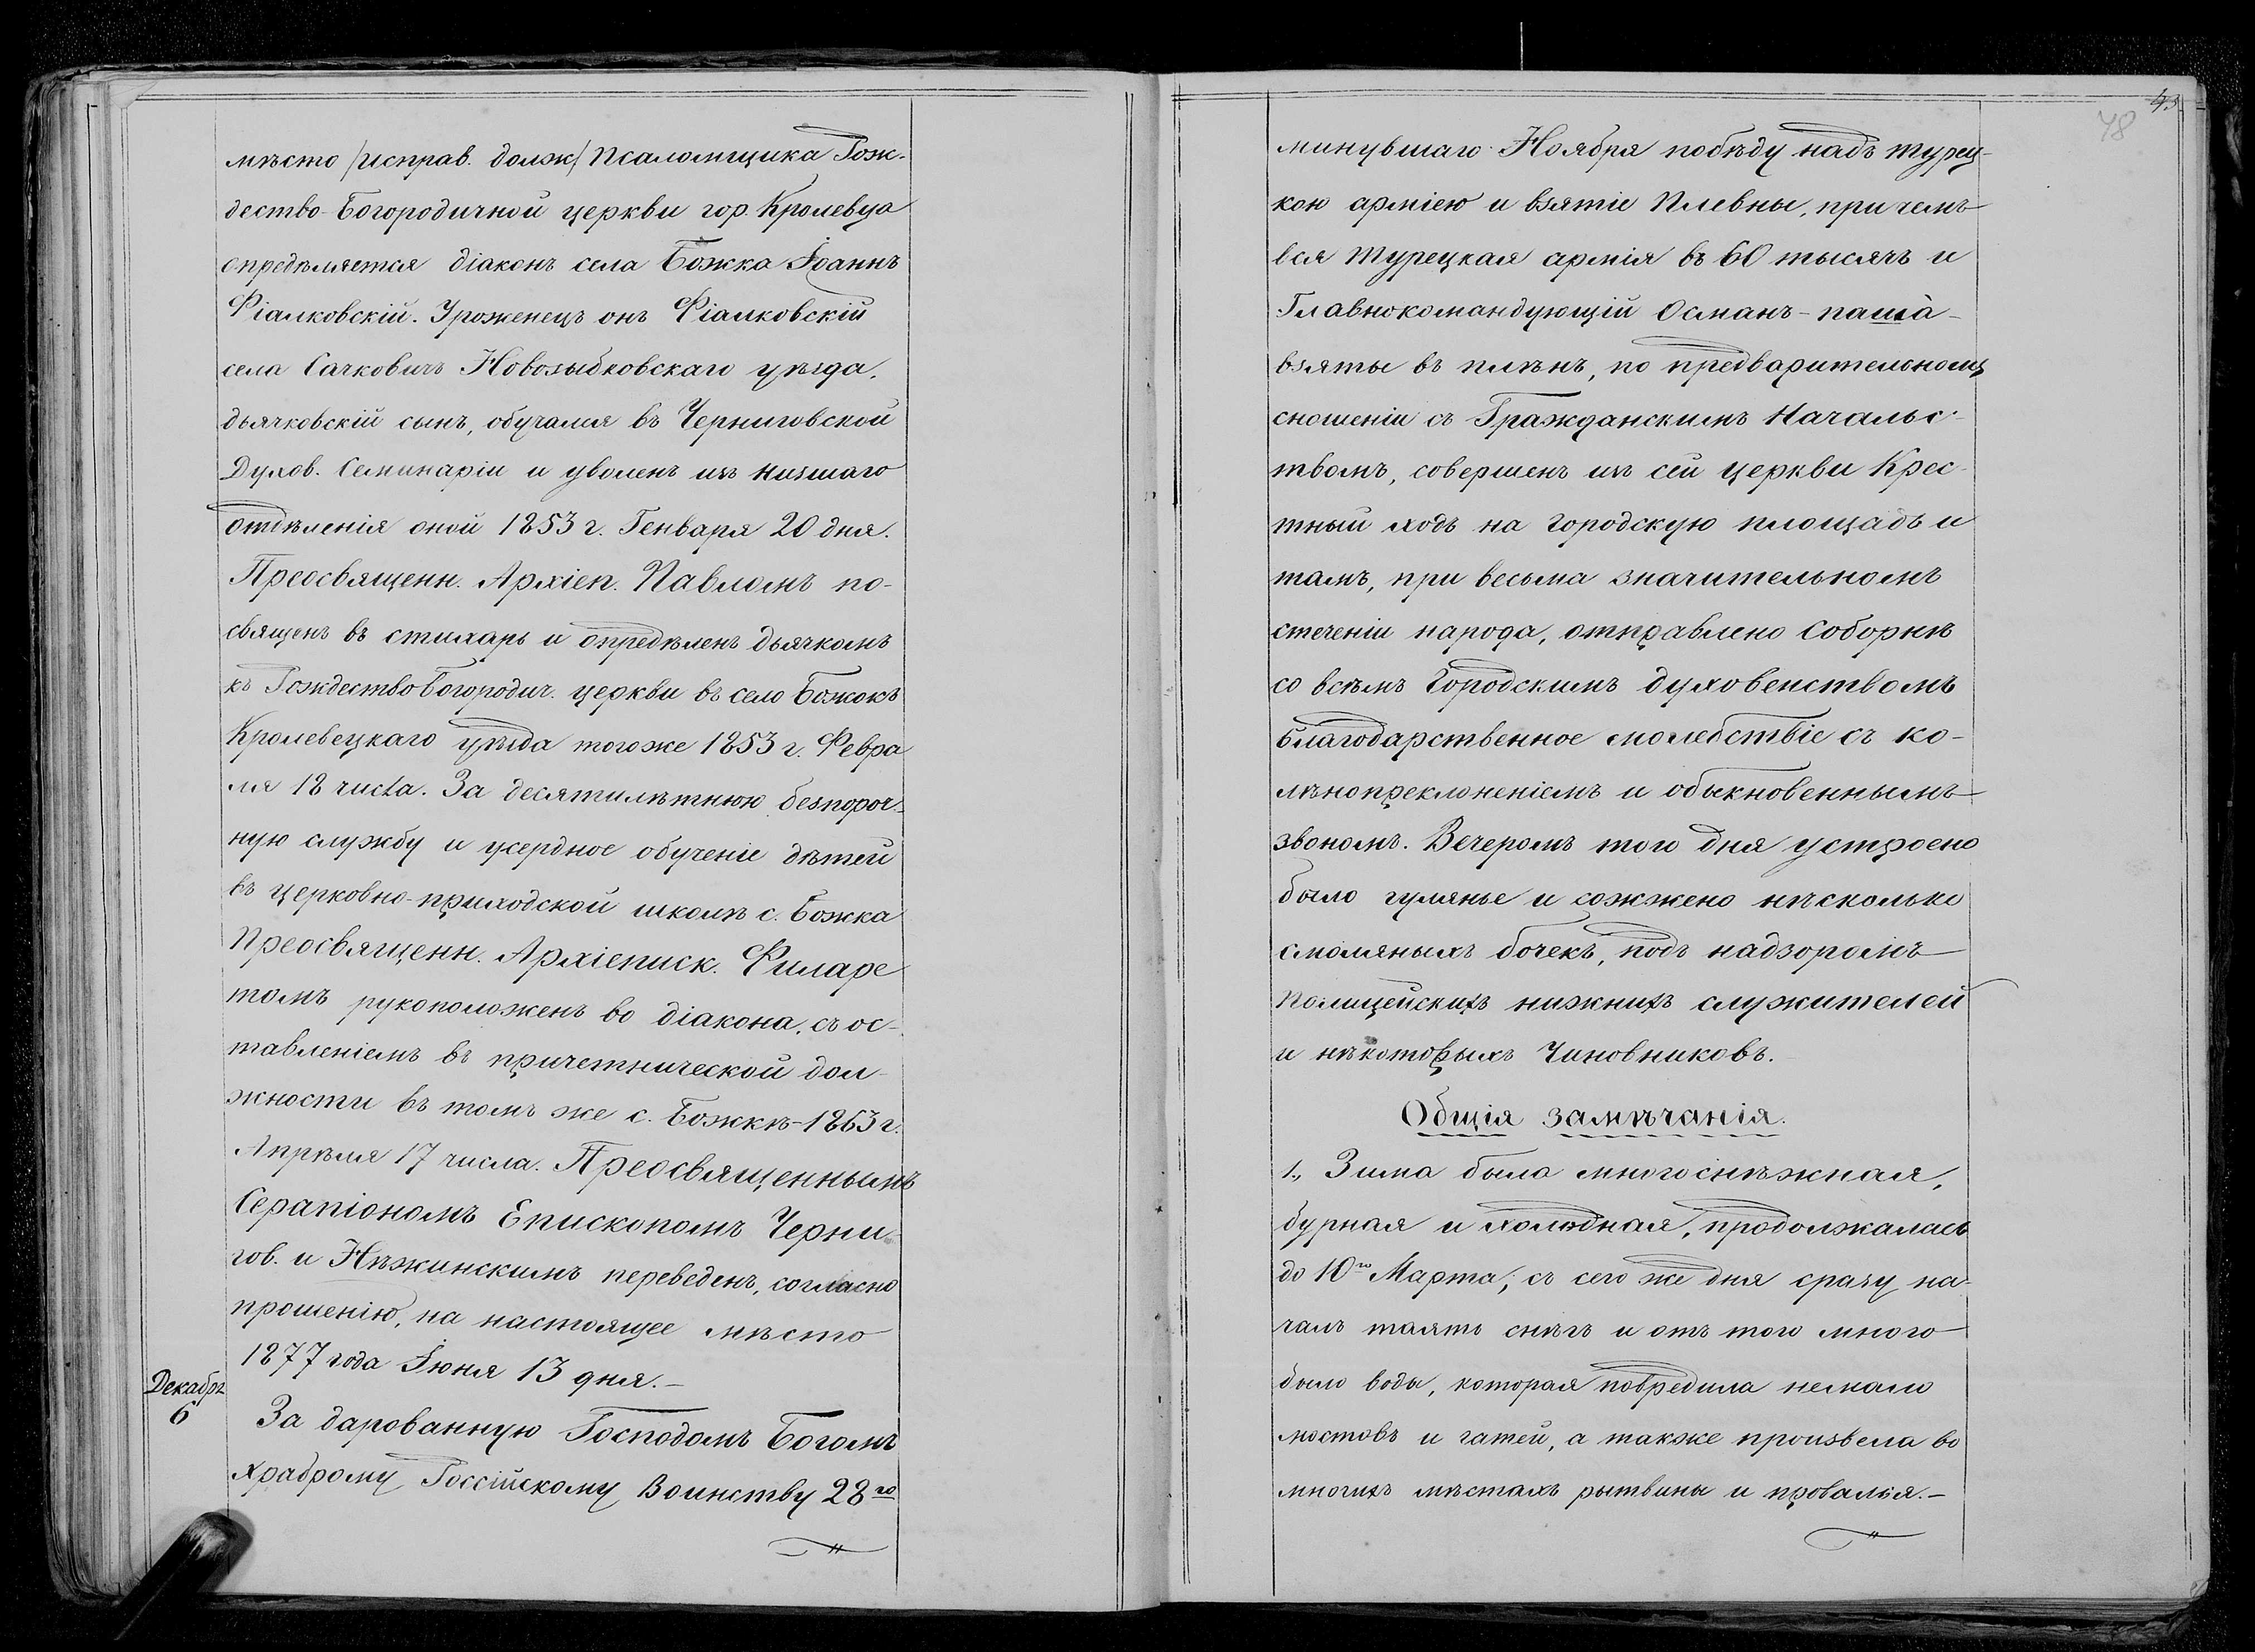 мѣсто /исправ. долж/ Псаломщика Рож-
дество-Богородичной церкви гор. Кролевца
опредѣляется діаконъ села Божка Іоаннъ
Фіалковскій. Уроженецъ онъ Фіалковскій
села Сачковичъ Новозыбковскаго уѣзда,
дьячковскій сынъ, обучался въ Черниговской
Духов. Семинаріи и уволенъ изъ низшаго
отдѣленія оной 1853 г. Генваря 20 дня.
Преосвященн. Архіеп. Павломъ по-
священъ въ стихарь и опредѣленъ дьячкомъ
къ Рождество Богородич. церкви въ село Божокъ
Кролевецкаго уѣзда тогоже 1853 г. Февра
ля 18 числа. За десятилѣтнюю безпороч-
ную службу и усердное обученіе дѣтей
въ церковно-приходской школѣ с. Божка
Преосвященн. Архіеписк. Филаре
томъ рукоположенъ во діакона, съ ос-
тавленіемъ въ причетнической дол-
жности въ томъ же с. Божкѣ-1863 г.
Апрѣля 17 числа. Преосвященнымъ
Серапіономъ Епископомъ Черни-
гов. и Нѣжинскимъ переведенъ, согласно
прошенію, на настоящее мѣсто
1877 года Іюня 13 дня.-
Декабрь
6
За дарованную Господомъ Богомъ
храброму Россійскому Воинству 28го
48
минувшаго Ноября побѣду надъ турец-
кою арміею и взятіе Плевны, при чемъ
вся Турецкая армія въ 60 тысячъ и
Главнокомандующій Османъ-паша-
взяты въ плѣнъ, по предварительному
сношеніи съ Гражданскимъ Начальс-
твомъ, совершенъ изъ сей церкви Крес-
тный ходъ на городскую площадь и
тамъ, при весьма значительномъ
стеченіи народа, отправлено Соборнѣ
со всѣмъ Городскимъ духовенствомъ
благодарственное молебствіе съ ко-
лѣнопреклоненіемъ и обыкновеннымъ
звономъ. Вечеромъ того дня устроено
было гулянье и сожжено нѣсколько
смоляныхъ бочекъ, подъ надзоромъ
Полицейскихъ нижнихъ служителей
и нѣкоторыхъ Чиновниковъ.
Общія замѣчанія.
1., Зима была многоснѣжная,
бурная и холодная, продолжалась
до 10го Марта; съ сего же дня сразу на-
чалъ таять снѣгъ и отъ того много
было воды, которая повредила немало
мостовъ и гатей, а также произвела во
многихъ мѣстахъ рытвины и провалья.-